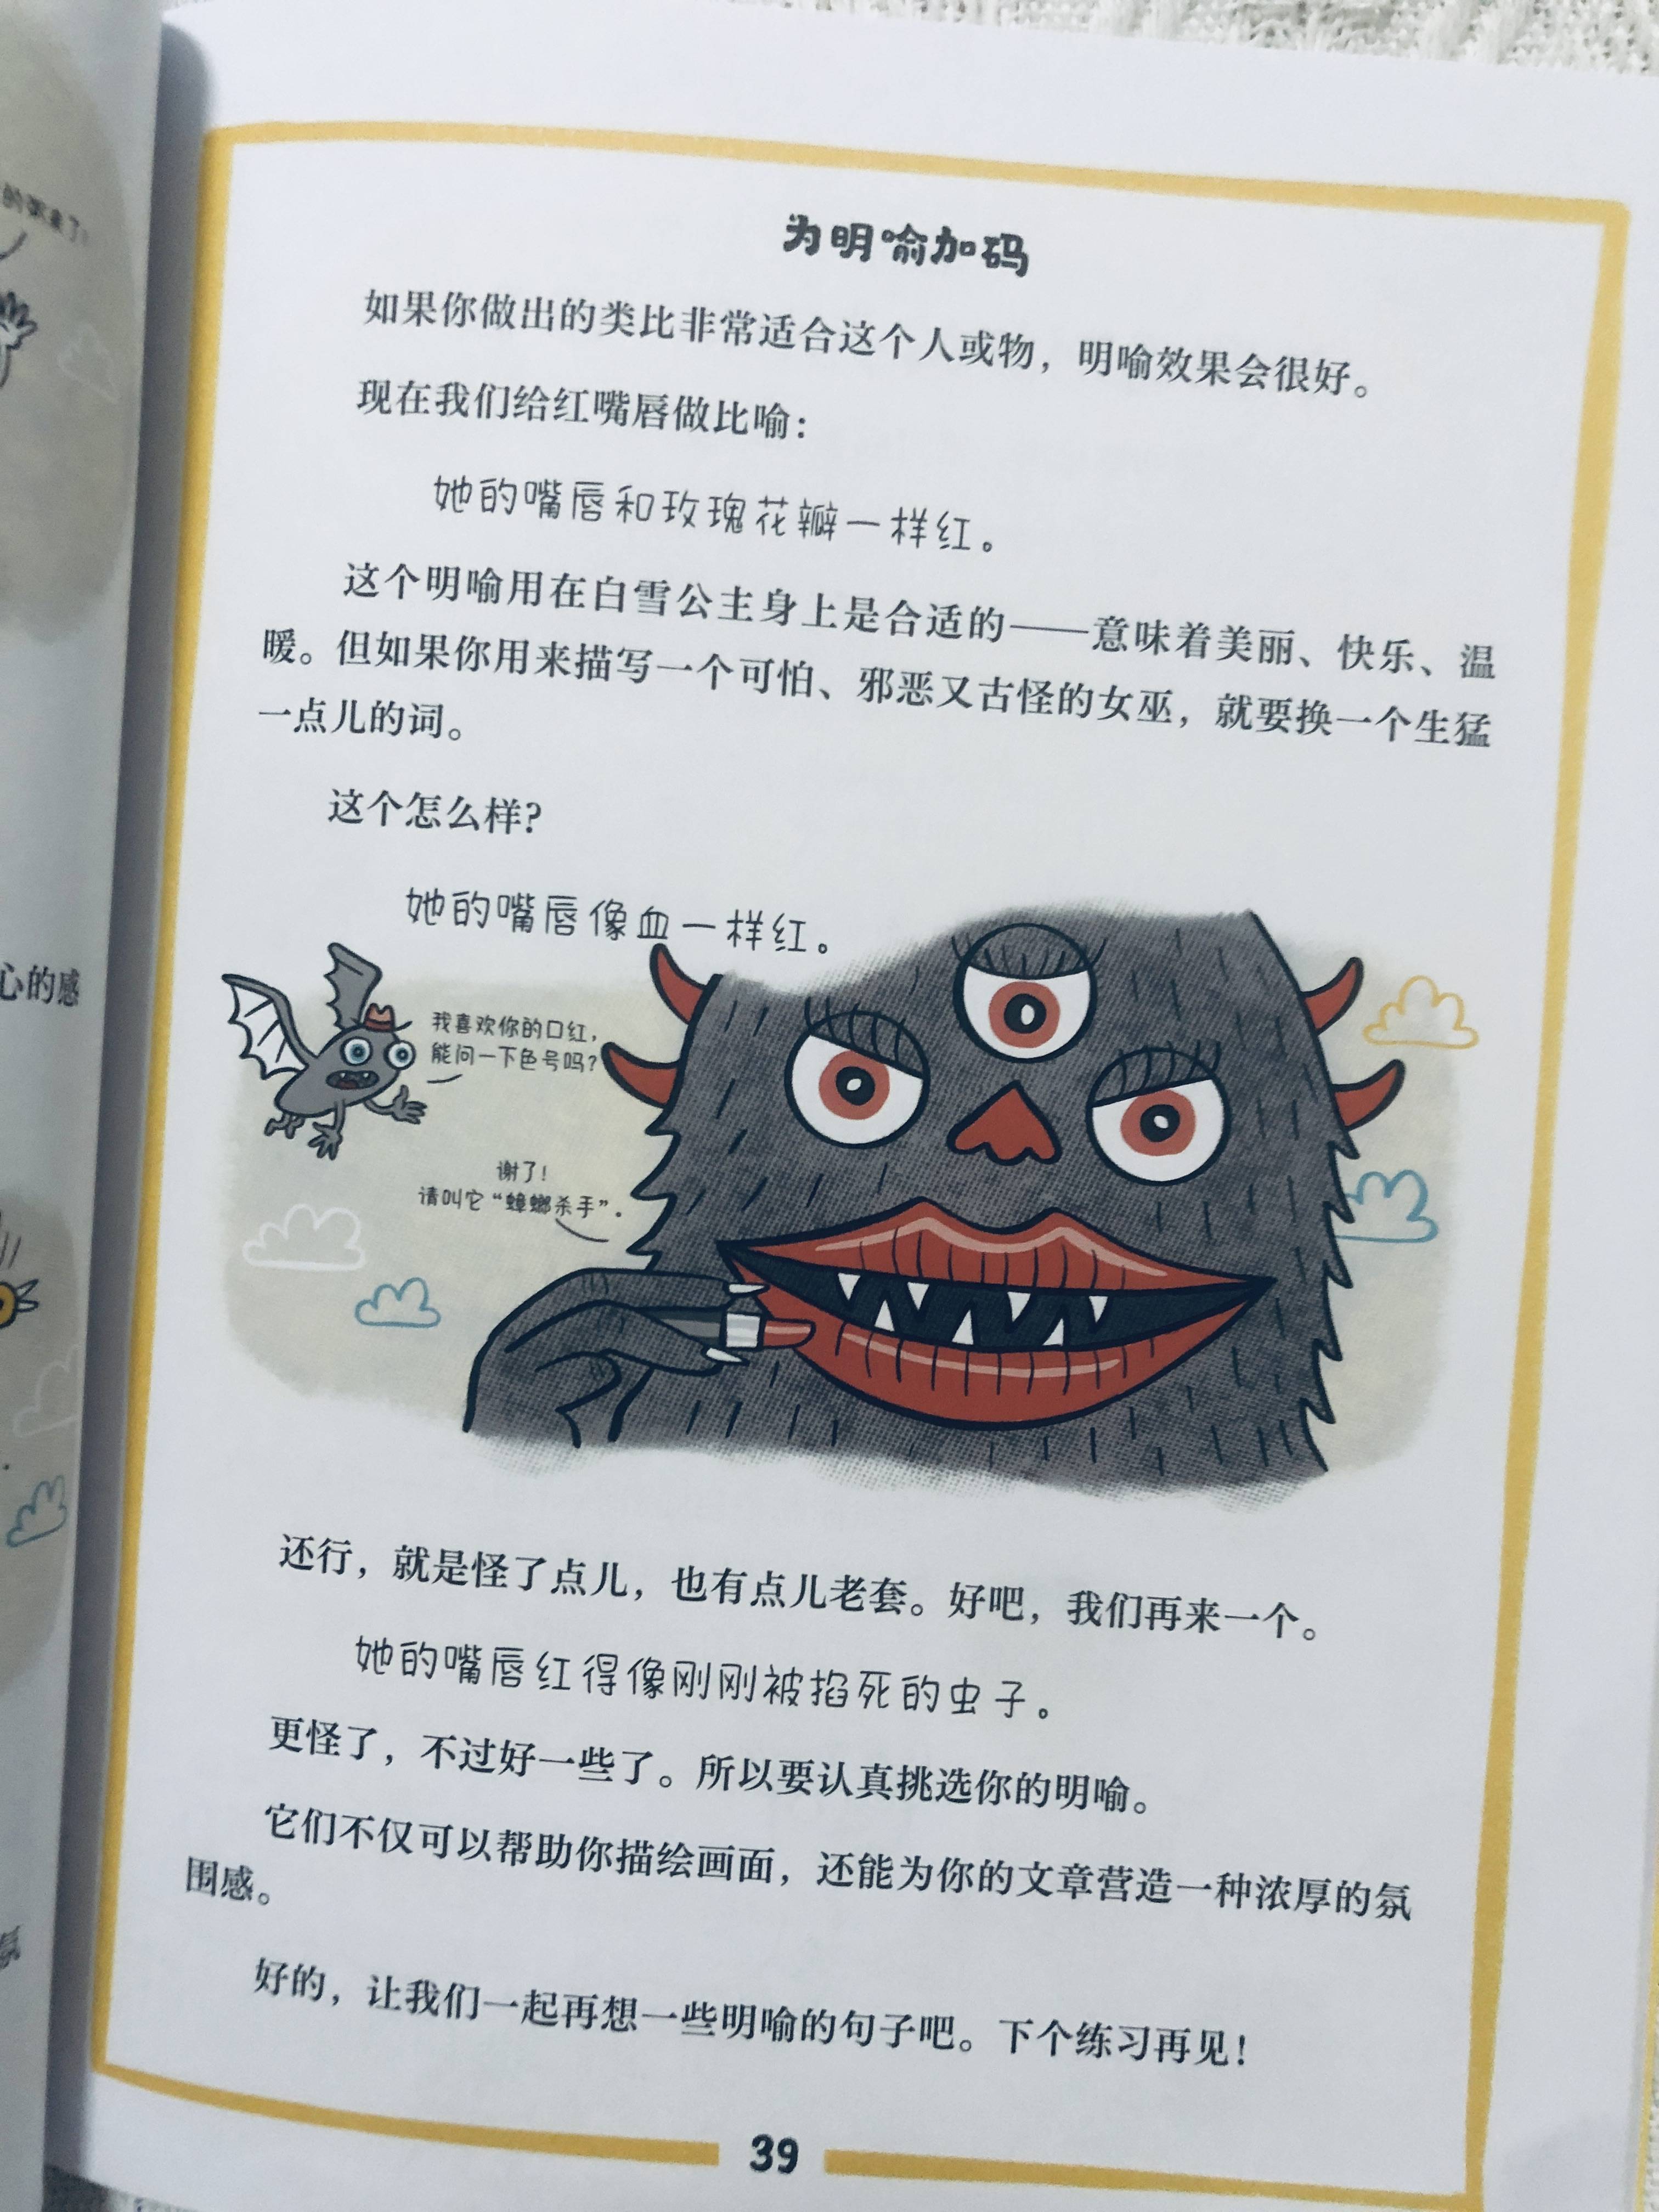 的粥来了！
心的感
为明喻加码
如果你做出的类比非常适合这个人或物，明喻效果会很好。
现在我们给红嘴唇做比喻：
她的嘴唇和玫瑰花瓣一样红。
这个明喻用在白雪公主身上是合适的——意味着美丽、快乐、温
暖。但如果你用来描写一个可怕、邪恶又古怪的女巫，就要换一个生猛
一点儿的词。
这个怎么样？
她的嘴唇像血一样红。
我喜欢你的口红，
能问一下色号吗？
谢了！
请叫它“蟑螂杀手”。
还行，就是怪了点儿，也有点儿老套。好吧，我们再来一个。
她的嘴唇红得像刚刚被掐死的虫子。
更怪了，不过好一些了。所以要认真挑选你的明喻。
它们不仅可以帮助你描绘画面，还能为你的文章营造一种浓厚的氛
围感。
好的，让我们一起再想一些明喻的句子吧。下个练习再见！
39